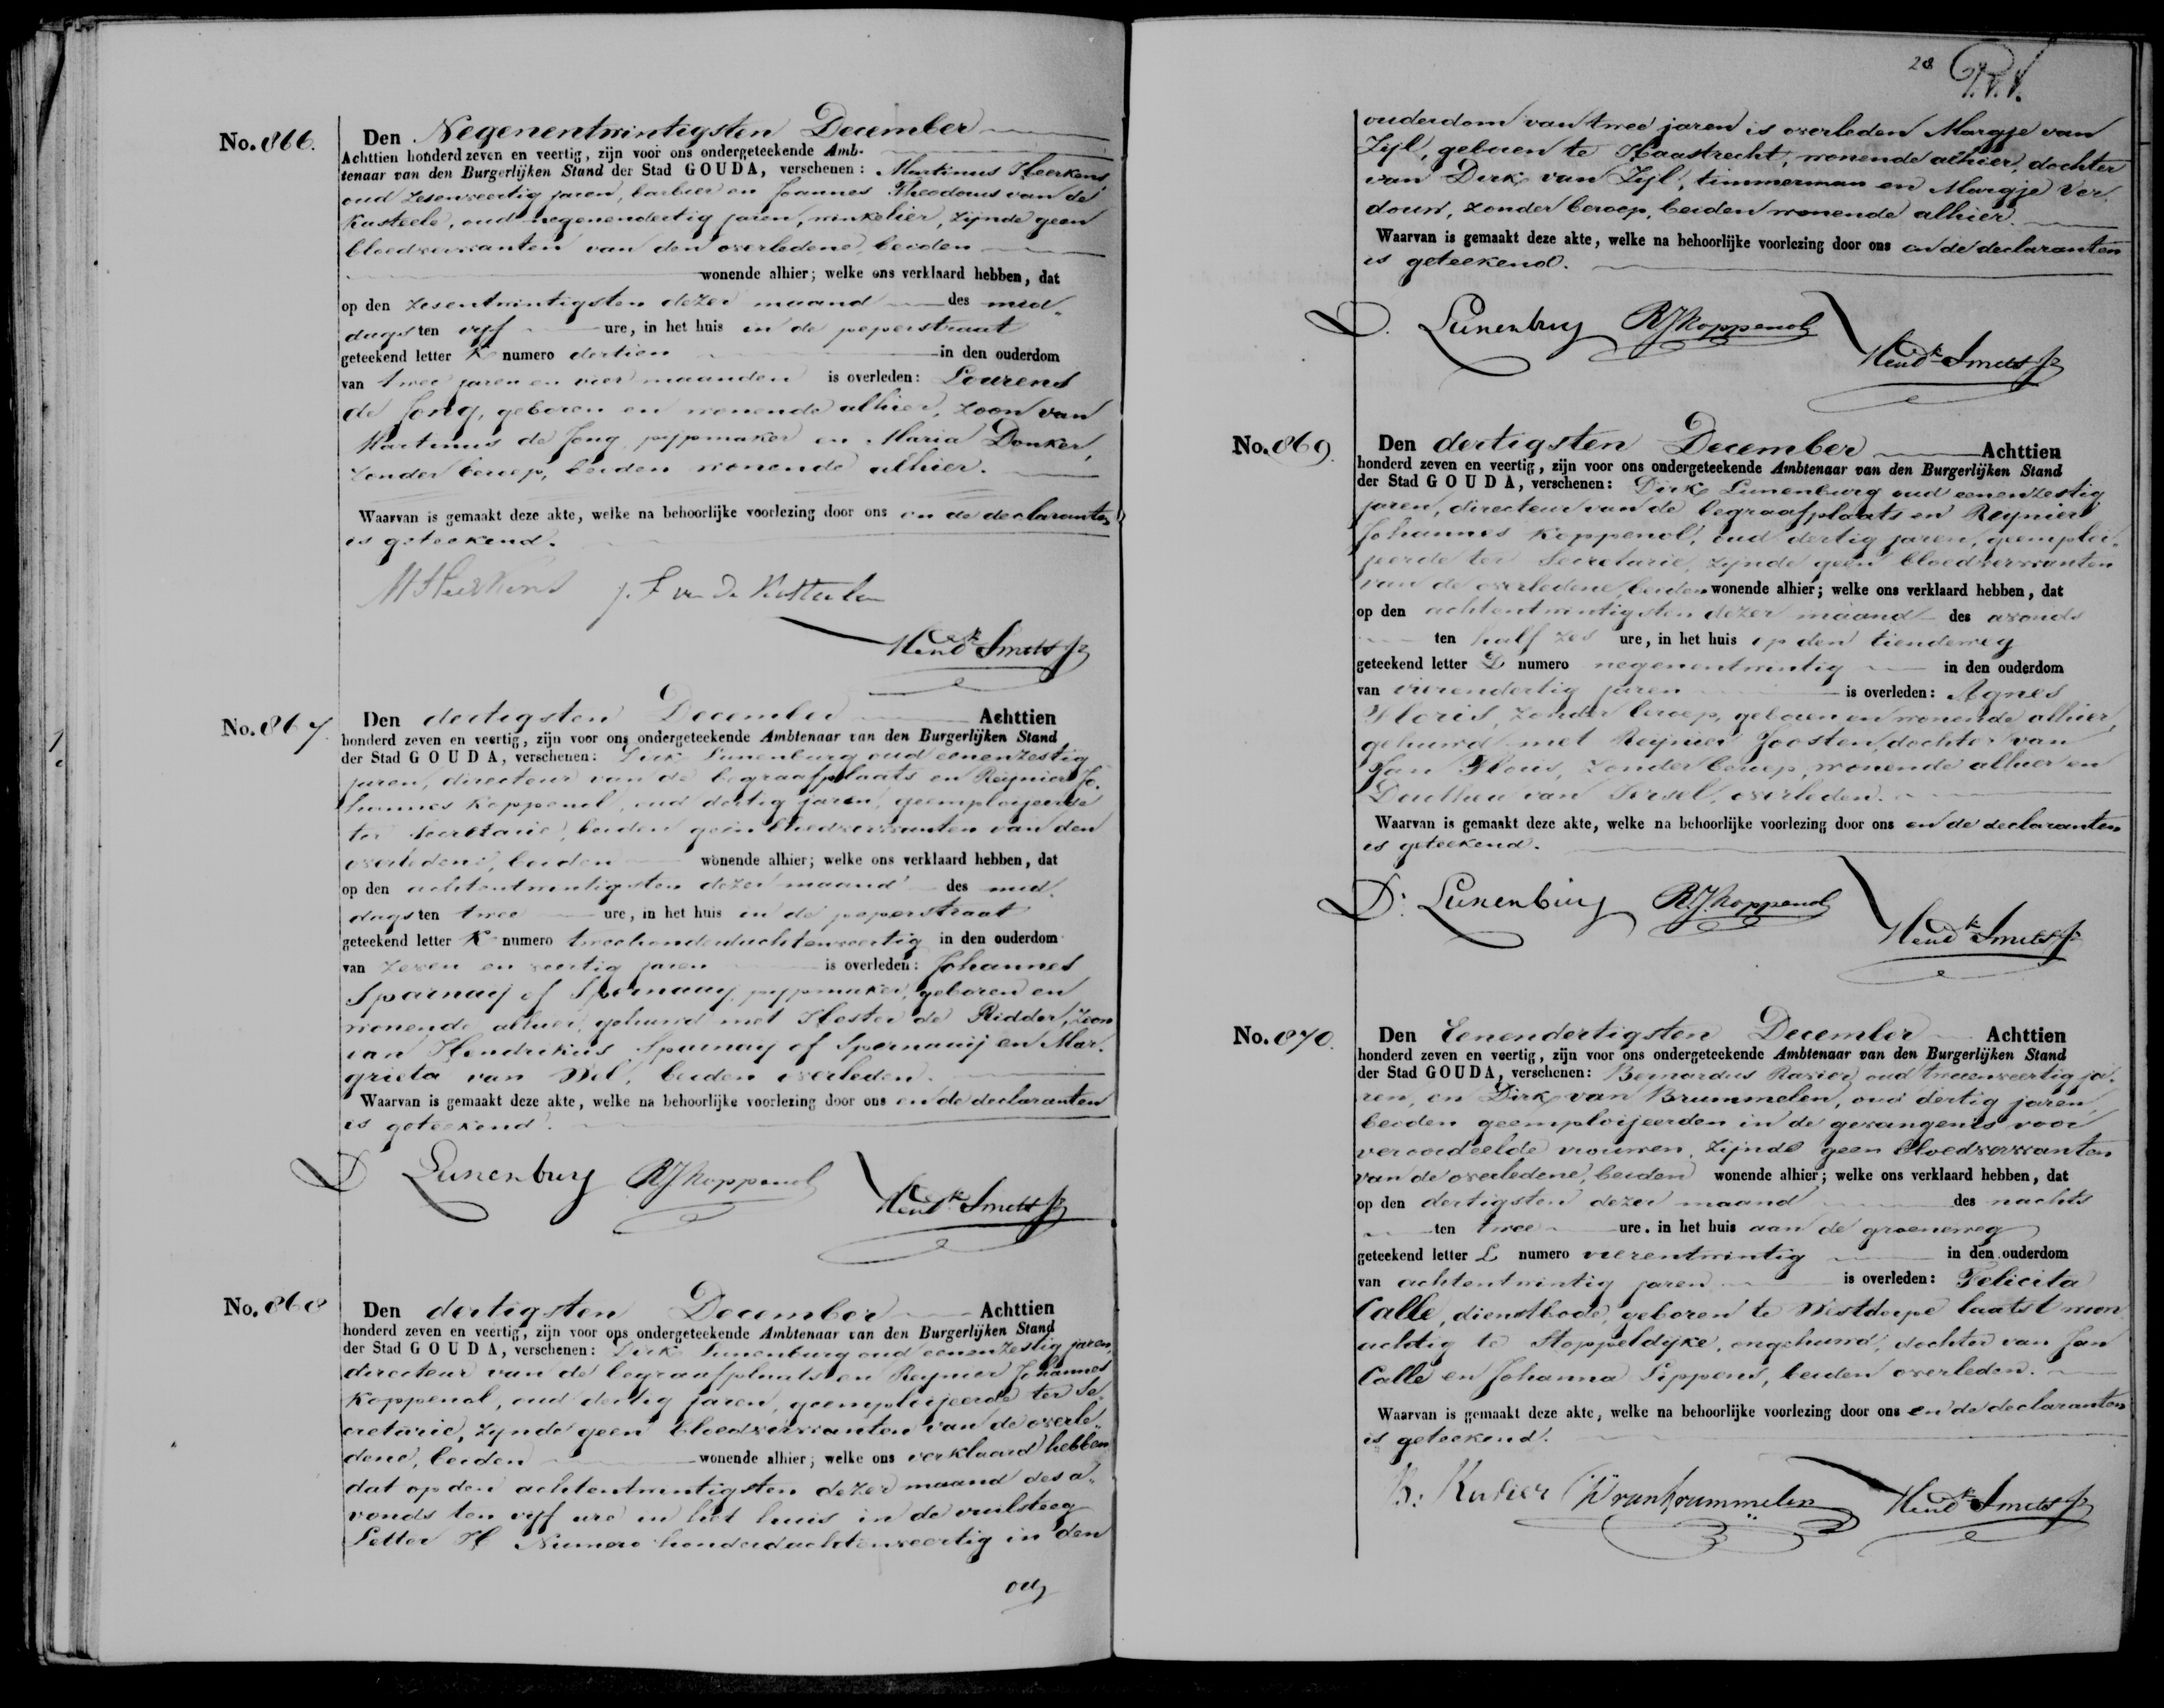 No. 866.
Den Negenentwintigsten December
Achttien honderd zeven en veertig, zijn voor ons ondergeteekende Amb-
tenaar van den Burgerlijken Stand der Stad GOUDA, verschenen: Martinus Heerkens
oud zesenveertig jaren, barbier en Joannes Theodorus van de
Kasteele, oud negenendertig jaren, winkelier, zijnde geen
bloedverwanten van den overledene, beiden
wonende alhier; welke ons verklaard hebben, dat
op den zesentwintigsten dezer maand des mid-
dags ten vijf ure, in het huis in de peperstraat
geteekend letter K numero dertien in den ouderdom
van twee jaren en vier maanden is overleden: Lourens
de Jong, geboren en wonende alhier, zoon van
Martinus de Jong pijpmaker en Maria Donker,
zonder beroep, beiden wonende alhier.
Waarvan is gemaakt deze akte, welke na behoorlijke voorlezing door ons en de declaranten
is geteekend.
M Heerkens J. T van De Kasteele
Hendk Smits Jz
No. 867.
Den dertigsten December Achttien
honderd zeven en veertig, zijn voor ons ondergeteekende Ambtenaar van den Burgerlijken Stand
der Stad GOUDA, verschenen: Dirk Lunenburg oud eenenzestig
jaren, directeur van de begraafplaats en Reynier Jo-
hannes Koppenol, oud dertig jaren, geemploijeerde
ter Secretarie, beiden geen bloedverwanten van den
overledene, beiden wonende alhier; welke ons verklaard hebben, dat
op den achtentwintigsten dezer maand des mid-
dags ten twee ure, in het huis in de peperstraat
geteekend letter K numero tweehonderdachtenveertig in den ouderdom
van zeven en veertig jaren is overleden: Johannes
Sparnaij of Spernaaij, pijpmaker, geboren en
wonende alhier, gehuwd met Hester de Ridder, zoon
van Hendrikus Sparnaij of Spernaaij en Mar-
grieta van Wel, beiden overleden.
Waarvan is gemaakt deze akte, welke na behoorlijke voorlezing door ons en de declaranten
is geteekend.
D Lunenburg RJKoppenol
Hendk Smits Jz
No. 868
Den dertigsten December Achttien
honderd zeven en veertig, zijn voor ons ondergeteekende Ambtenaar van den Burgerlijken Stand
der Stad GOUDA, verschenen: Dirk Lunenburg oud eenenzestig jaren,
directeur van de begraafplaats en Reynier Johannes
Koppenol, oud dertig jaren, geemploijeerde ter Se-
cretarie, zijnde geen bloedverwanten van de overle-
dene, beiden wonende alhier; welke ons verklaard hebben
dat op den achtentwintigsten dezer maand des a-
vonds ten vijf ure in het huis in de vuilsteeg
Letter H Numero honderdachtenveertig in den
28
ouderdom van twee jaren is overleden Margje van
Zijl, geboren te Haastrecht, wonende alhier, dochter
van Dirk van Zijl, timmerman en Margje Ver-
douw, zonder beroep, beiden wonende alhier.
Waarvan is gemaakt deze akte, welke na behoorlijke voorlezing door ons en de declaranten
is geteekend.
D. Lunenburg RJKoppenol
Hendk Smits Jz
No. 869.
Den dertigsten December Achttien
honderd zeven en veertig, zijn voor ons ondergeteekende Ambtenaar van den Burgerlijken Stand
der Stad GOUDA, verschenen: Dirk Lunenburg oud eenenzestig
jaren, directeur van de begraafplaats en Reynier
Johannes Koppenol, oud dertig jaren, geemploi-
jeerde ter Secretarie, zijnde geen bloedverwanten
van de overledene, beiden wonende alhier; welke ons verklaard hebben, dat
op den achtentwintigsten dezer maand des avonds
ten half zes ure, in het huis op den tiendeweg
geteekend letter D numero negenentwintig in den ouderdom
van vierendertig jaren is overleden: Agnes
Floris, zonder beroep, geboren en wonende alhier,
gehuwd met Reynier Joosten, dochter van
Jan Floris, zonder beroep, wonende alhier en
Dorthea van Tersel, overleden.
Waarvan is gemaakt deze akte, welke na behoorlijke voorlezing door ons en de declaranten
is geteekend.
D. Lunenburg R.J.Koppenol
Hendk Smits Jz
No. 870.
Den Eenendertigsten December Achttien
honderd zeven en veertig, zijn voor ons ondergeteekende Ambtenaar van den Burgerlijken Stand
der Stad GOUDA, verschenen: Bernardus oud tweeenveertig ja-
ren, en Dirk van Brummelen, oud dertig jaren,
beiden geemploijeerden in de gevangenis voor
veroordeelde vrouwen, zijnde geen bloedverwanten
van de overledene, beiden wonende alhier; welke ons verklaard hebben, dat
op den dertigsten dezer maand des nachts
ten twee ure. in het huis aan de groeneweg
geteekend letter L numero vierentwintig in den ouderdom
van achtentwintig jaren is overleden: Felicita
Calle, dienstbode, geboren te Westdorpe laatst woon
achtig te Stoppeldijke, ongehuwd, dochter van Jan
Calle en Johanna Lippens, beiden overleden.
Waarvan is gemaakt deze akte, welke na behoorlijke voorlezing door ons en de declaranten
is geteekend.
D van Brummelen Hendk Smits Jz